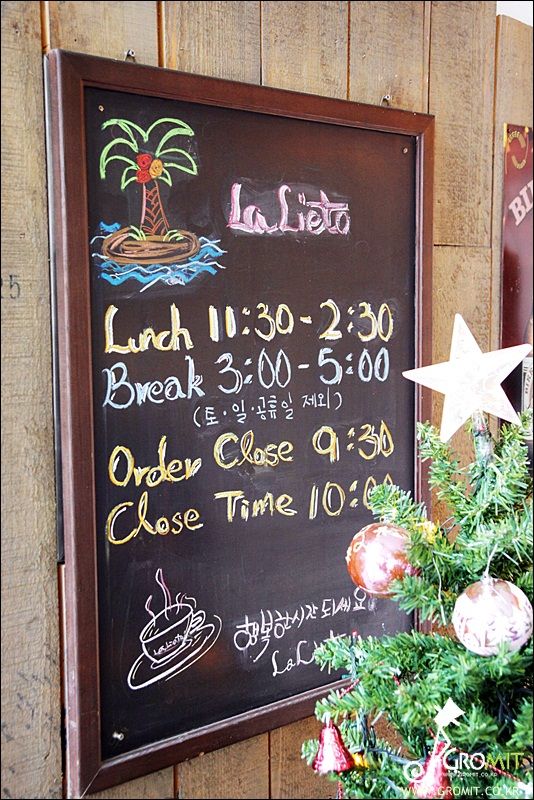 La Lieto
Lunch 11:30 - 2:30
Break 3:00 - 5:00
(토·일·공휴일 제외)
Order Close 9:30
Close Time 10:00
행복한시간 되세요
La Lieto
GROMIT
WWW.GROMIT.CO.KR